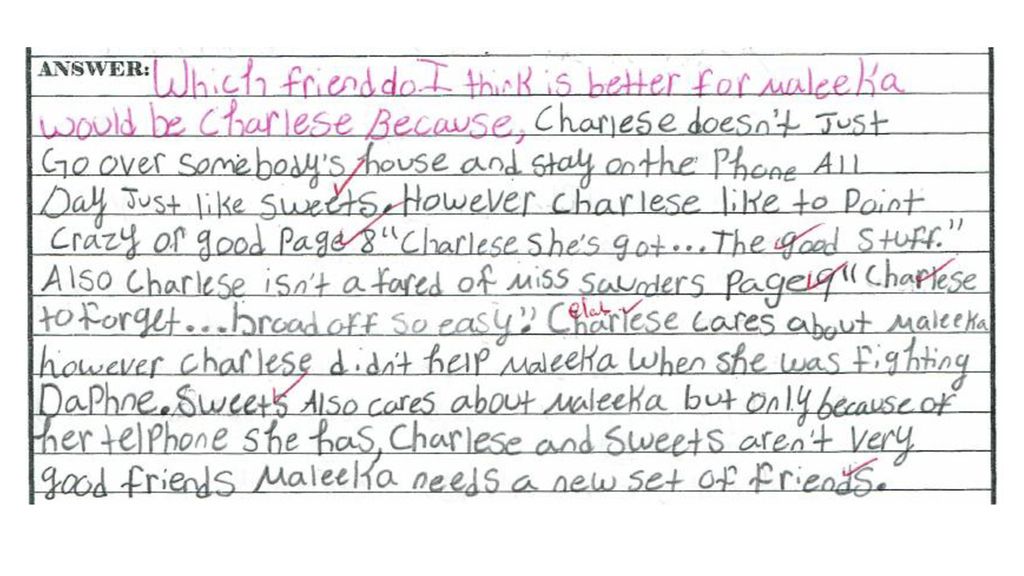 ANSWER: Which friend do I think is better for maleeka
would be Charlese Because, Charlese doesn't Just
Go over somebody's house and stay on the Phone All
Day Just like Sweets. However Charlese like to Point
Crazy or good Page 8 "Charlese she's got... The good Stuff."
Also Charlese isn't a fared of miss Saunders Page 9 "Charlese
to forget... broad off so easy". Charlese cares about maleeka
elab
however Charlese didn't help maleeka when she was fighting
Daphne. Sweets Also cares about maleeka but only because of
her telphone she has, Charlese and Sweets aren't very
good friends Maleeka needs a new set of friends.